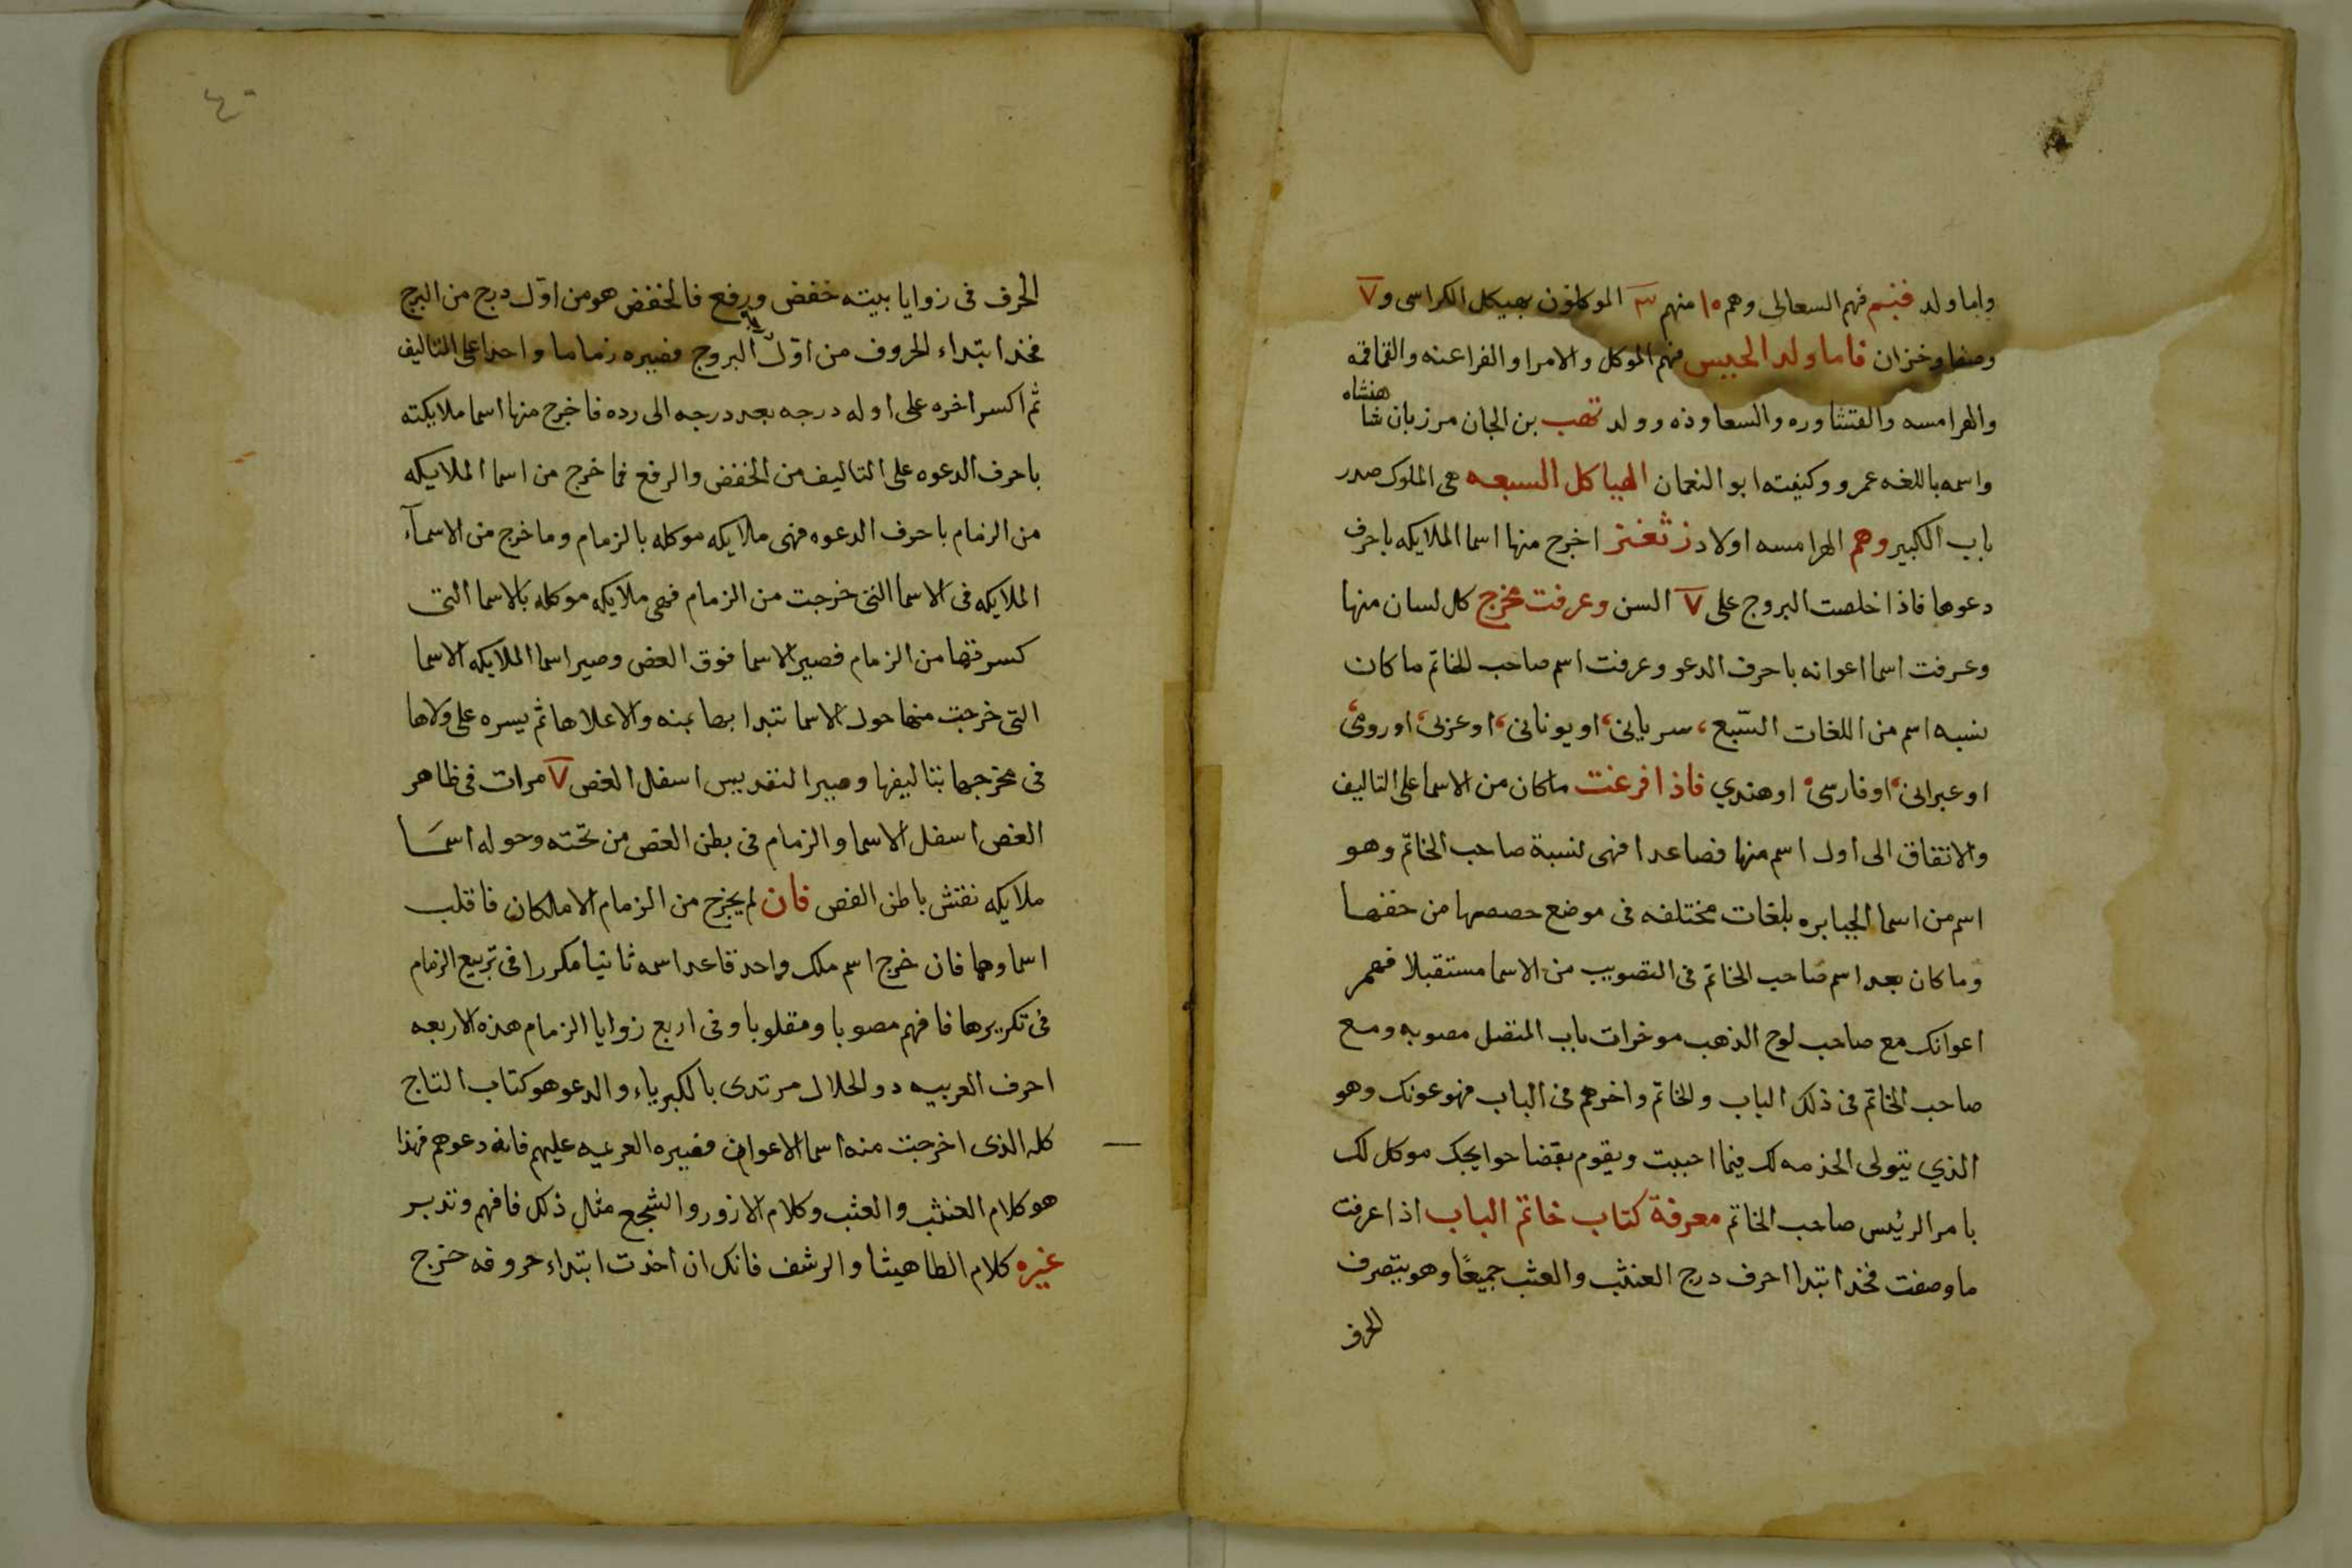 واما ولد فهم السعالى وهم ١٥ منهم ٣ الموكلون بهيكل الكراسى و ٧
وصفا وخزان فاما ولد الحبيس فهم الموكل والامرا والفراعنه والقماقمه
هنشاه
والهرامسه والسعاوذه وولد بن الجان مرزبان شا
واسمه باللغه عمرو وكنيته ابو النعمان الهياكل السبعه هى الملوك صدر
باب الكبير وهم الهرامسه اولاد اخرج منها اسما الملايكه باحرف
دعوها فاذا خلصت البروج على ٧ السن وعرفت مخرج كل لسان منها
وعرفت اسما اعوانه باحرف الدعو وعرفت اسم صاحب الخاتم ما كان
نسبه اسم من اللغات السّبع، سريانى، او يونانى، او عزبى، او رومى،
او عبرانى، او فارسى، او هندي فاذا فرغت ماكان من الاسما على التاليف
والاتفاق الى اول اسم منها فصاعدا فهى نسبة صاحب الخاتم وهو
اسم من اسما الجبابره بلغات مختلفه فى موضع حصصها من خفضها
وما كان بعد اسم صاحب الخاتم فى التصويب من الاسما مستقبلا فهم
اعوانك مع صاحب لوح الذهب موخرات باب المتصل مصوبه ومع
صاحب الخاتم فى ذلك الباب والخاتم واخرهم فى الباب فهو عونك وهو
الذي يتولى الخدمه لك فيما احببت ويقوم بقضا حوايجك موكل لك
بامر الرئيس صاحب الخاتم معرفة كتاب خاتم الباب اذا عرفت
ما وصفت فخذ ابتدا احرف درج العنثب والعثب جميعًا وهو يتصرف
الحرف
٤٠
الحرف فى زوايا بيته خفض ورفع فالخفض هو من اوّل درج من البرج
فخذ ابتداء الحروف من اوّل البروج فصيره زماما واحدا على التاليف
ثم اكسر اخره على اوله درجه بعد درجه الى رده فاخرج منها اسما ملايكته
باحرف الدعوه على التاليف من الخفض والرفع فما خرج من اسما الملايكه
من الزمام باحرف الدعوه فهى ملايكه موكله بالزمام وما خرج من الاسمآء
الملايكه فى الاسما التى خرجت من الزمام فهى ملايكه موكله بالاسما التى
كسرتها من الزمام فصير الاسما فوق الفص وصير اسما الملايكه الاسما
التى خرجت منها حول الاسما تبدا بها يمنه والاعلاها ثم يسره على ولاها
فى مخرجها بتاليفها وصير التقديس اسفل الفص ٧ مرات فى ظاهر
الفص اسفل الاسما والزمام فى بطن الفص من تحته وحوله اسما
ملايكه نقش باطن الفص فان لم يخرج من الزمام الا ملكان فاقلب
اسماوهما فان خرج اسم ملك واحد فاعد اسمه ثانيا مكررا فى تربيع الزمام
فى تكريرها فافهم مصوبا ومقلوبا وفى اربع زوايا الزمام هذه الاربعه
احرف العربيه دو الحلال مرتدى بالكبرياء والدعو هو كتاب التاج
كله الذى اخرجت منه اسما الاعوان فصيره العرعيه عليهم فانه دعوهم فهذا
هو كلام العنثب والعثب وكلام الازور والشجع مثل ذلك فافهم وتدبر
غيره كلام الطاهيثا والرشف فانك ان اخذت ابتداء حروفه خرج